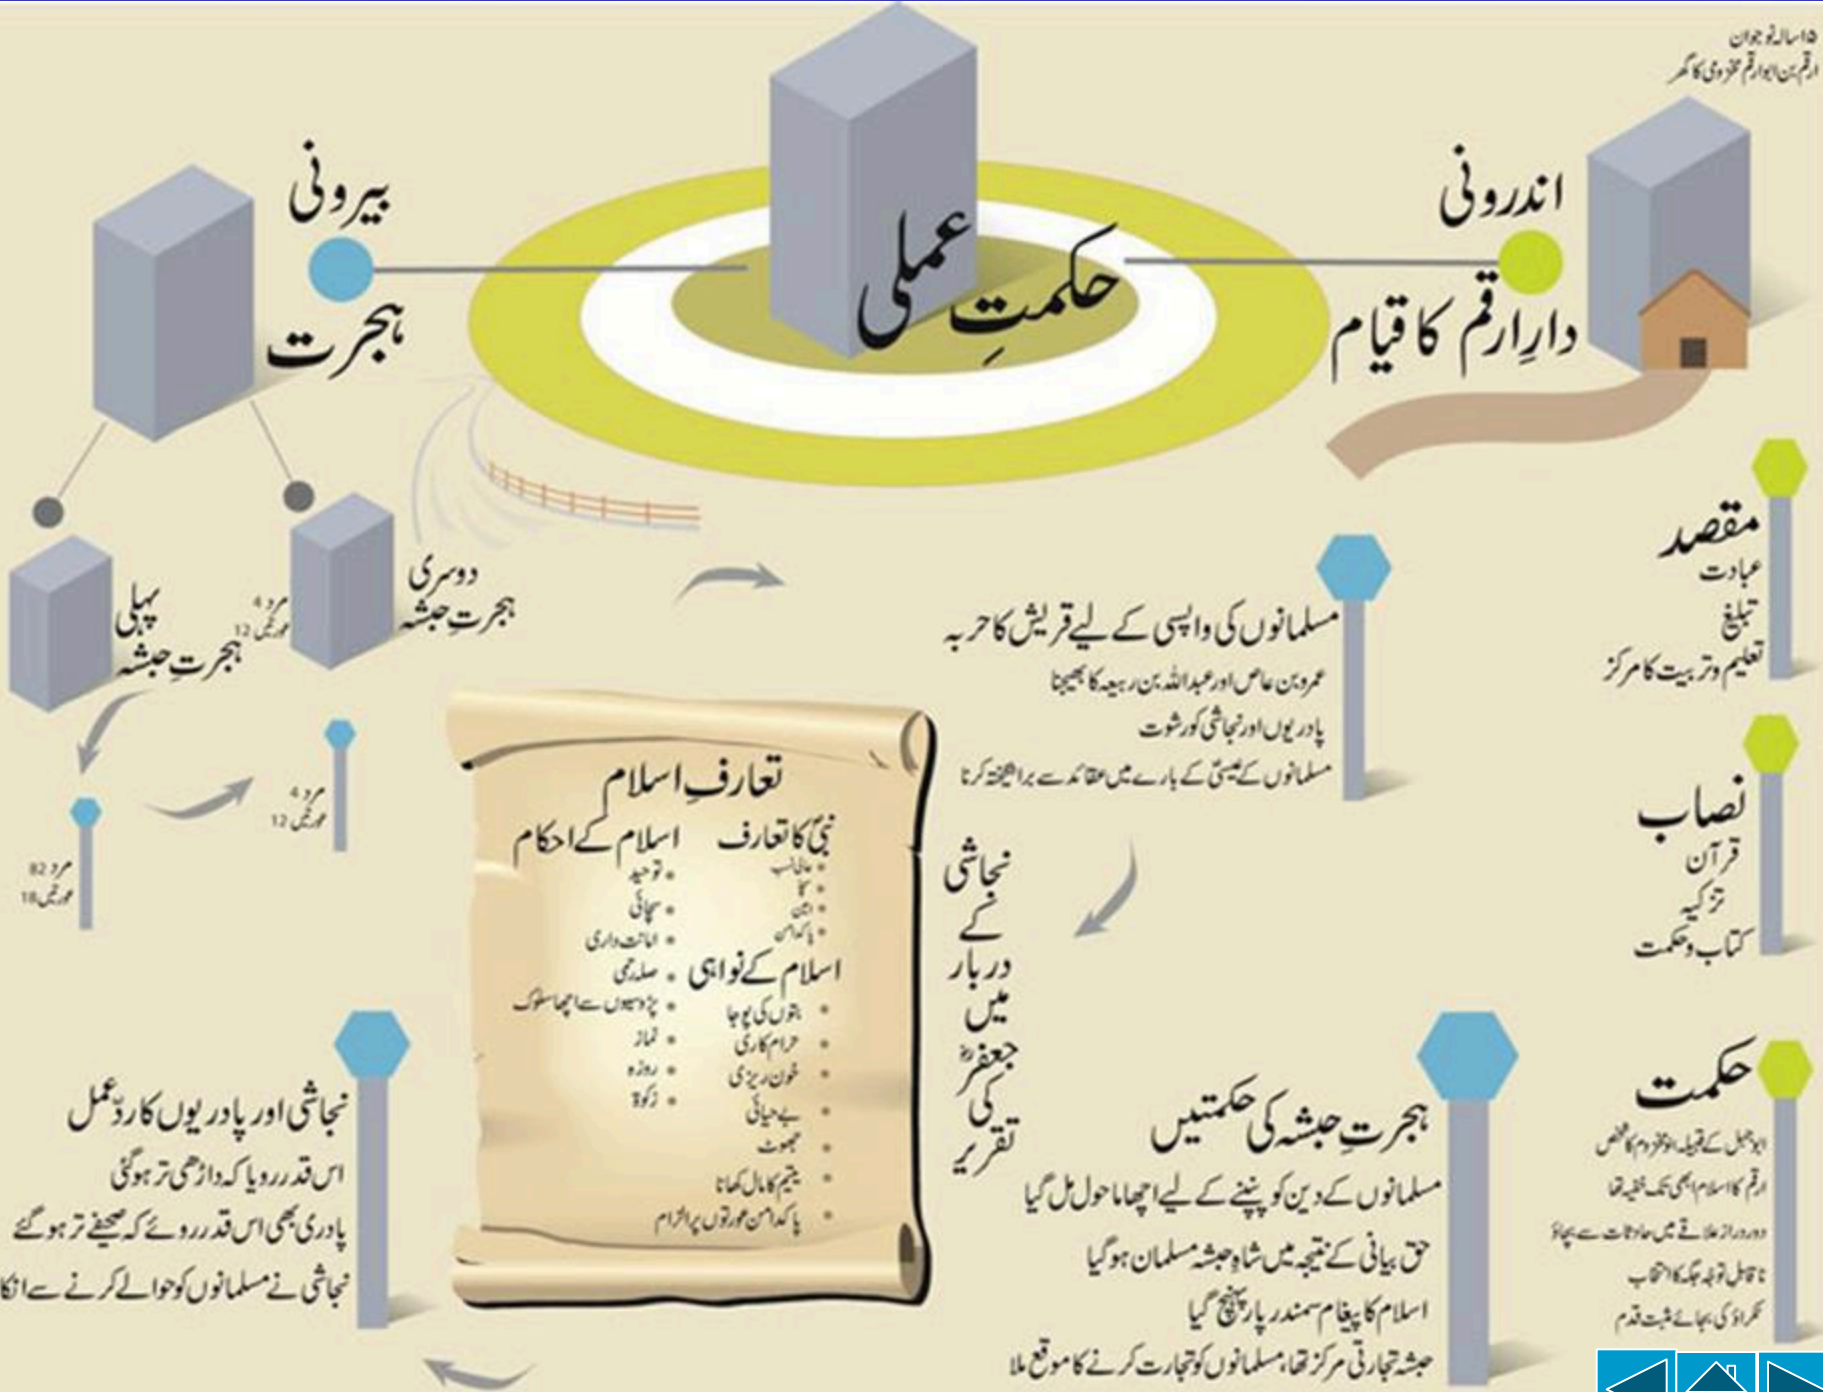 ۱۵ سالہ نوجوان
ارقم بن ابوارقم مخزومی کا گھر
حکمتِ عملی
اندرونی
دارِارقم کا قیام
مقصد
عبادت
تبلیغ
تعلیم وتربیت کا مرکز
نصاب
قرآن
تزکیہ
کتاب وحکمت
حکمت
ابوجہل کے قبیلہ بنومخزوم کا شخص
ارقم کا اسلام ابھی تک خفیہ تھا
دور دراز علاقے میں حادثات سے بچاؤ
ناقابل توجہ جگہ کا انتخاب
ٹکراؤ کی بجائے مثبت قدم
بیرونی
ہجرت
پہلی
ہجرتِ حبشہ
مرد 4
عورتیں 12
دوسری
ہجرتِ حبشہ
مرد 4
عورتیں 12
مرد 82
عورتیں 18
مسلمانوں کی واپسی کے لیے قریش کا حربہ
عمرو بن عاص اور عبداللہ بن ربیعہ کا بھیجنا
پادریوں اور نجاشی کو رشوت
مسلمانوں کے عیسیٰؑ کے بارے میں عقائد سے برانگیختہ کرنا
نجاشی
کے
دربار
میں
جعفرؓ
کی
تقریر
تعارفِ اسلام
نبیؐ کا تعارف
• عالی نسب
• سچا
• امین
• پاکدامن
اسلام کے نواہی
• بتوں کی پوجا
• حرام کاری
• خون ریزی
• بے حیائی
• جھوٹ
• یتیم کا مال کھانا
• پاکدامن عورتوں پر الزام
اسلام کے احکام
• توحید
• سچائی
• امانت داری
• صلہ رحمی
• پڑوسیوں سے اچھا سلوک
• نماز
• روزہ
• زکوٰۃ
ہجرتِ حبشہ کی حکمتیں
مسلمانوں کے دین کو پنپنے کے لیے اچھا ماحول مل گیا
حق بیانی کے نتیجہ میں شاہِ حبشہ مسلمان ہوگیا
اسلام کا پیغام سمندر پار پہنچ گیا
حبشہ تجارتی مرکز تھا، مسلمانوں کو تجارت کرنے کا موقع ملا
نجاشی اور پادریوں کا ردِّعمل
اس قدر رویا کہ داڑھی تر ہوگئی
پادری بھی اس قدر روئے کہ صحیفے تر ہوگئے
نجاشی نے مسلمانوں کو حوالے کرنے سے انکا